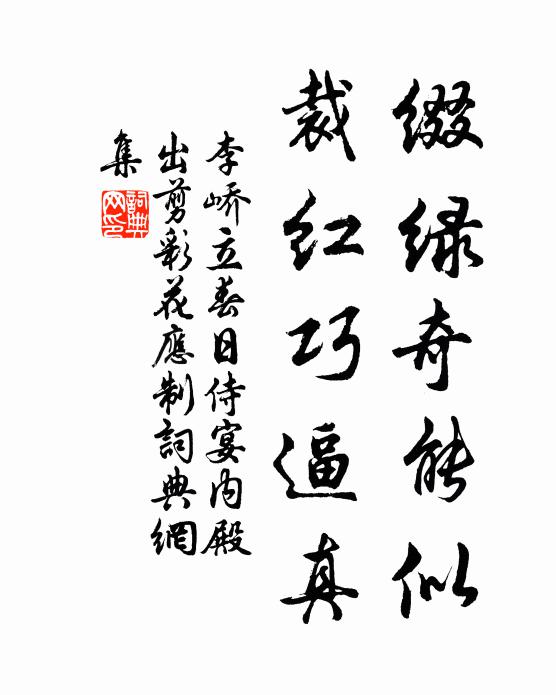 缀绿奇能似
裁红巧逼真
李峤立春日侍宴内殿
出剪彩花應制詞典網
集
詞典
网印